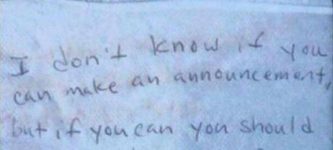 I don't know if you
can make an announcement,
but if you can you should